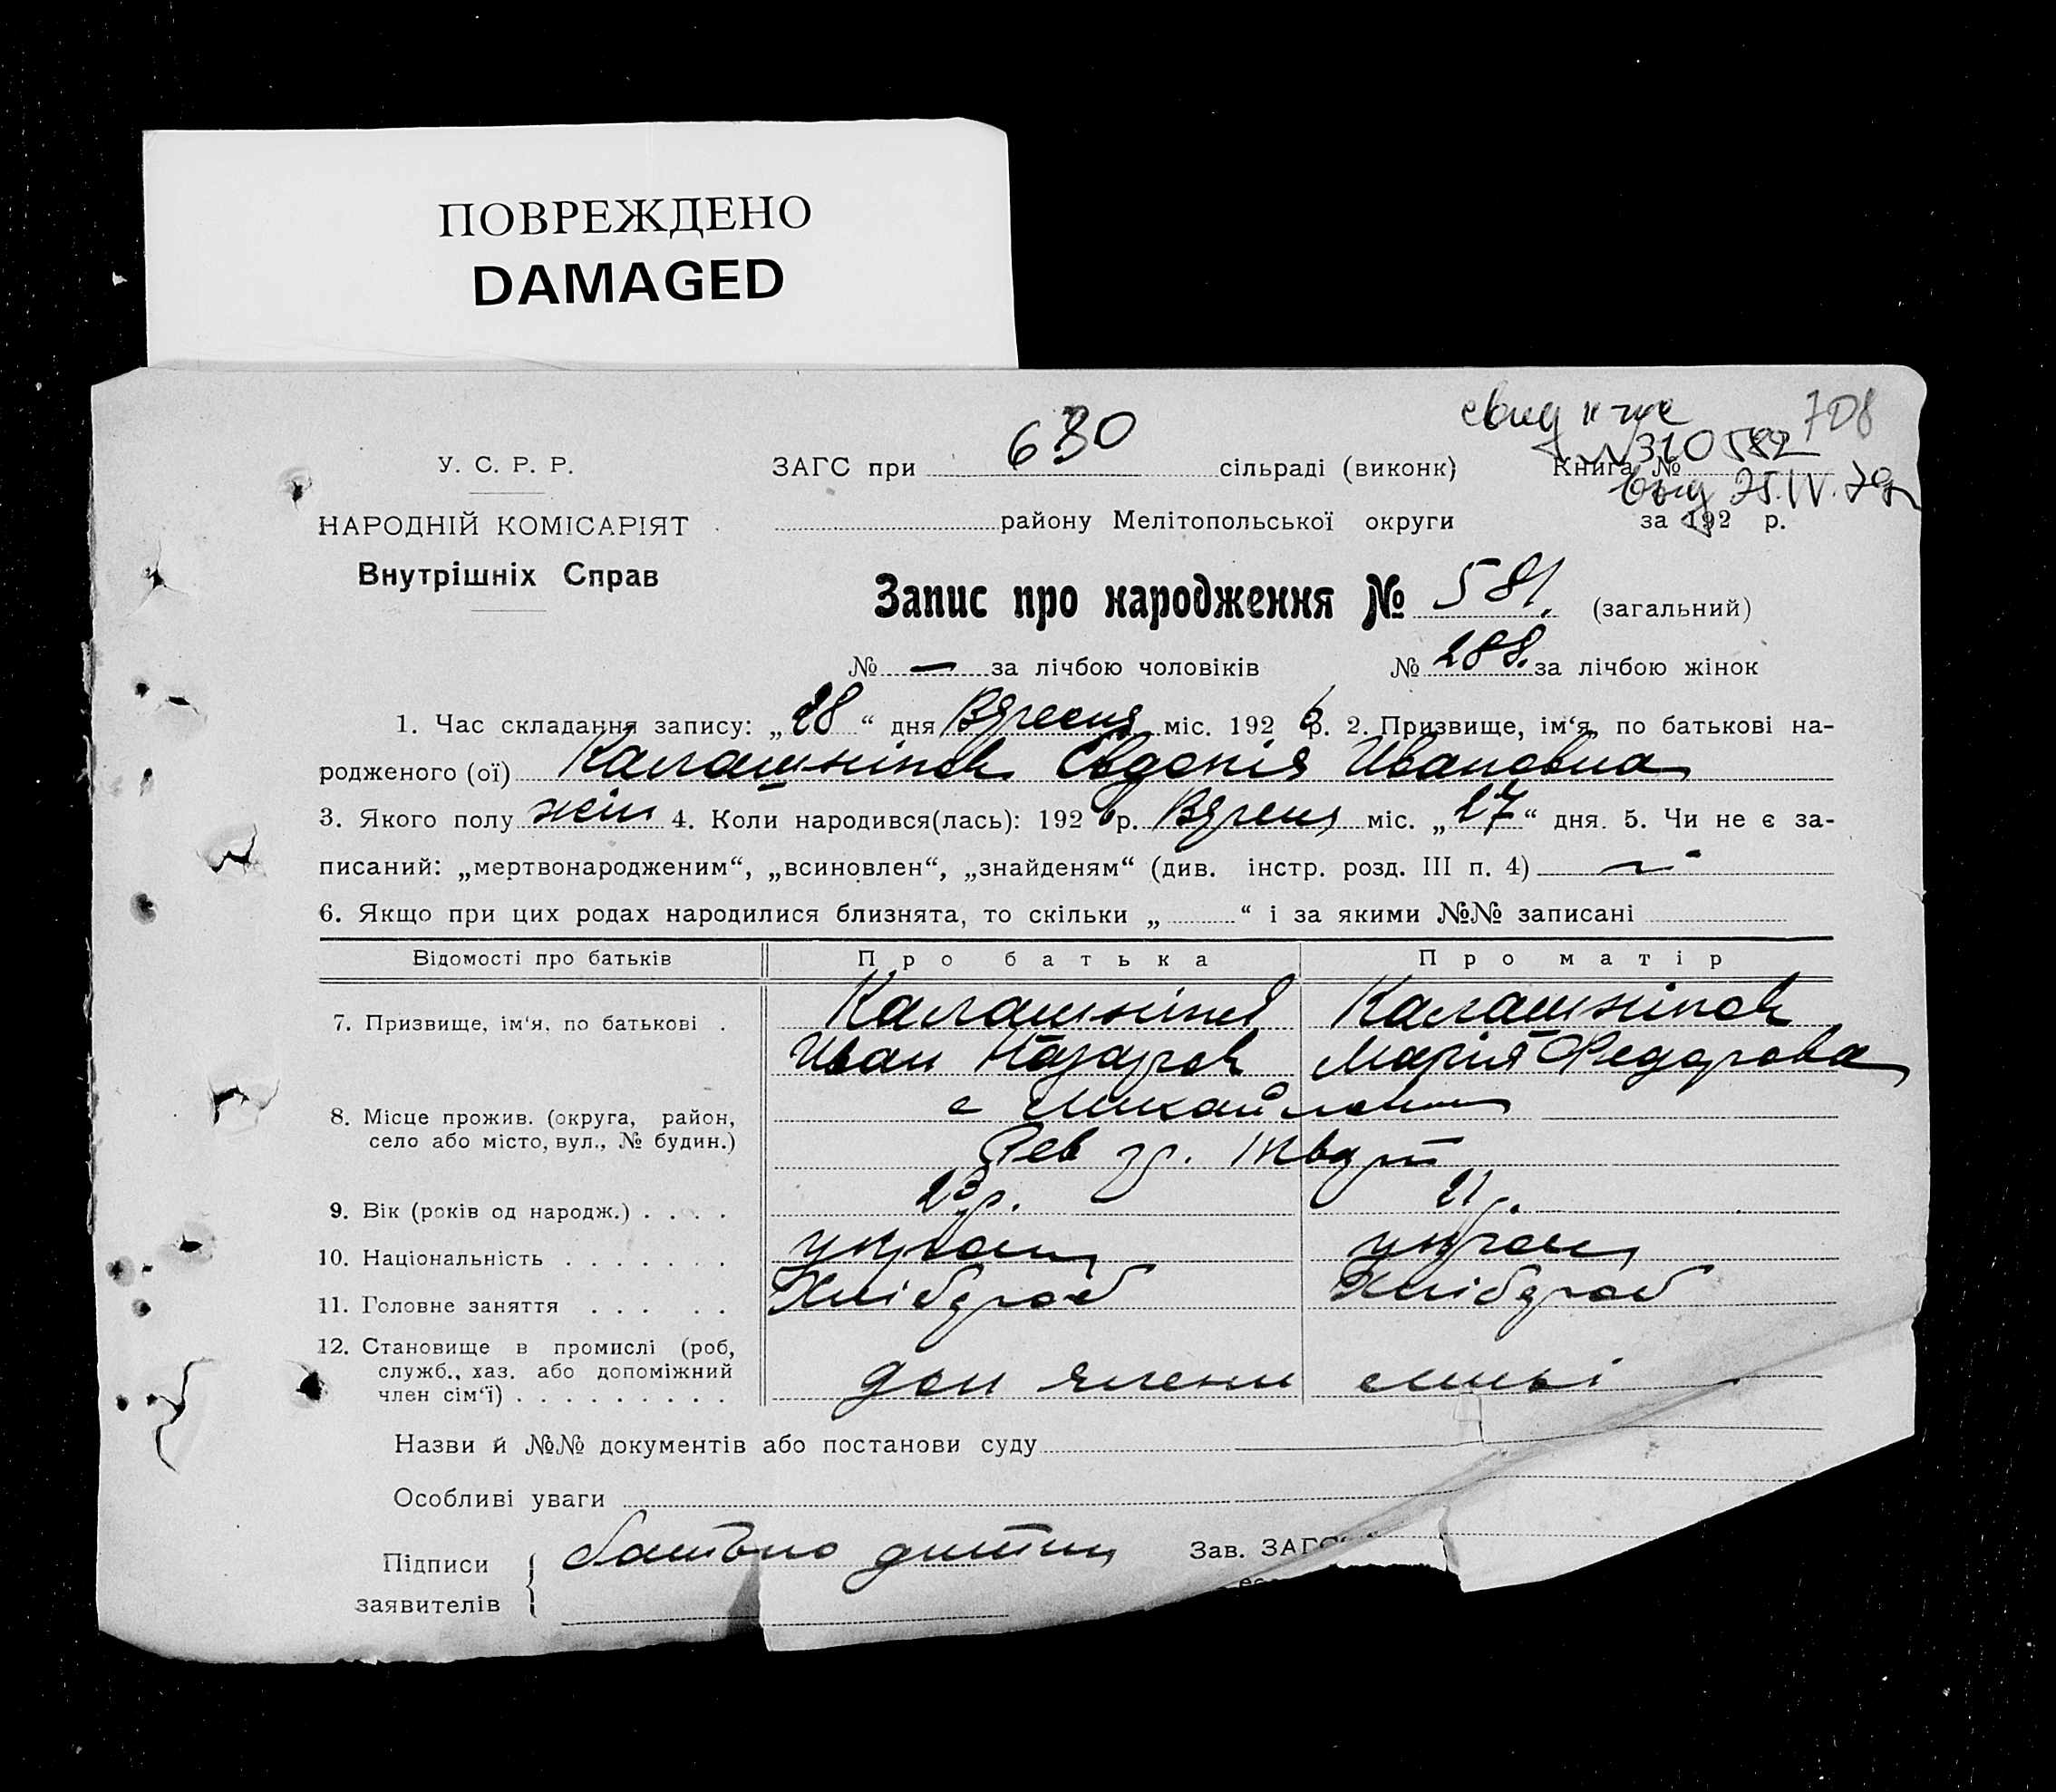 ПОВРЕЖДЕНО
DAMAGED
свид 708
У. С. Р. Р. ЗАГС при 630 сільраді (виконк) Книга № 310582
выд 25.IV.79
НАРОДНІЙ КОМІСАРІЯТ району Мелітопольської округи за 192 р.
Внутрішніх Справ
Запис про народження № 581. (загальний)
№ — за лічбою чоловіків № 288. за лічбою жінок
1. Час складання запису: „28“ дня Вересня міс. 1926 р. 2. Призвище, ім‘я, по батькові на-
родженого (ої) Калашніков Євдокія Ивановна
3. Якого полу жін 4. Коли народився(лась): 1926 р. Вересня міс. „27“ дня. 5. Чи не є за-
писаний: „мертвонародженим“, „всиновлен“, „знайденям“ (див. інстр. розд. III п. 4) —
6. Якщо при цих родах народилися близнята, то скільки „ “ і за якими №№ записані
Відомості про батьків Про батька Про матір
7. Призвище, ім‘я, по батькові . Калашніков Калашніков
Иван Назаров Марія Федорова
8. Місце прожив. (округа, район, с Михайловка
село або місто, вул., № будин.)
9. Вік (років од народж.) . . . . 23 р. 21 р.
10. Національність . . . . . . . україн україн
11. Головне заняття . . . . . Хлібороб Хлібороб
12. Становище в промислі (роб,
служб., хаз. або допоміжний доп члени
член сім‘ї) . . . . . . . . .
Назви й №№ документів або постанови суду
Особливі уваги
Підписи батько дитини Зав. ЗАГС
заявителів